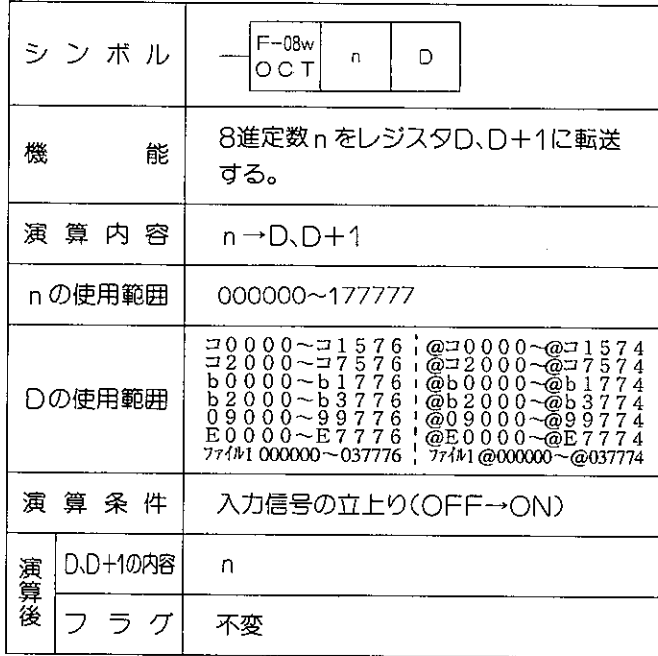 シンボル
F-08w
OCT
n
D
機能
8進定数nをレジスタD、D+1に転送
する。
演算内容
n→D、D+1
nの使用範囲
000000~177777
Dの使用範囲
コ0000~コ1576 @コ0000~@コ1574
コ2000~コ7576 @コ2000~@コ7574
b0000~b1776 @b0000~@b1774
b2000~b3776 @b2000~@b3774
09000~99776 @09000~@99774
E0000~E7776 @E0000~@E7774
ファイル1 000000~037776 ファイル1 @000000~@037774
演算条件
入力信号の立上り(OFF→ON)
演算後
D、D+1の内容
n
フラグ
不変